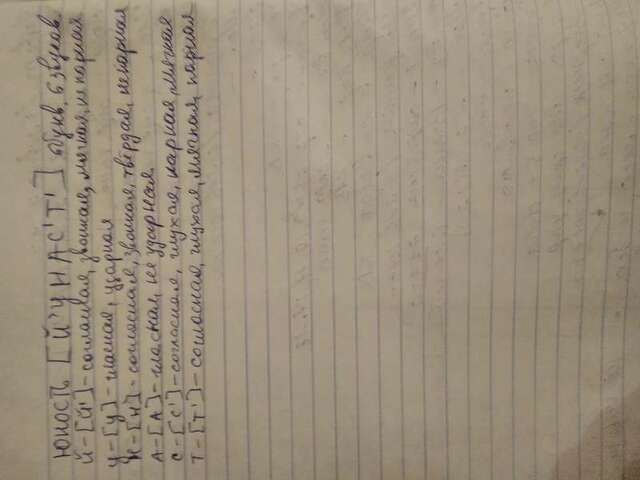 юность [Й'УНАС'Т'] 6 букв, 6 звуков
Й-[Й']-согласная, звонкая, мягкая, не парная
У-[У]-гласная, ударная
Н-[Н]-согласная, звонкая, твёрдая, непарная
А-[А]-гласная, не ударная
С-[С']-согласная, глухая, парная, мягкая
Т-[Т']-согласная, глухая, мягкая, парная